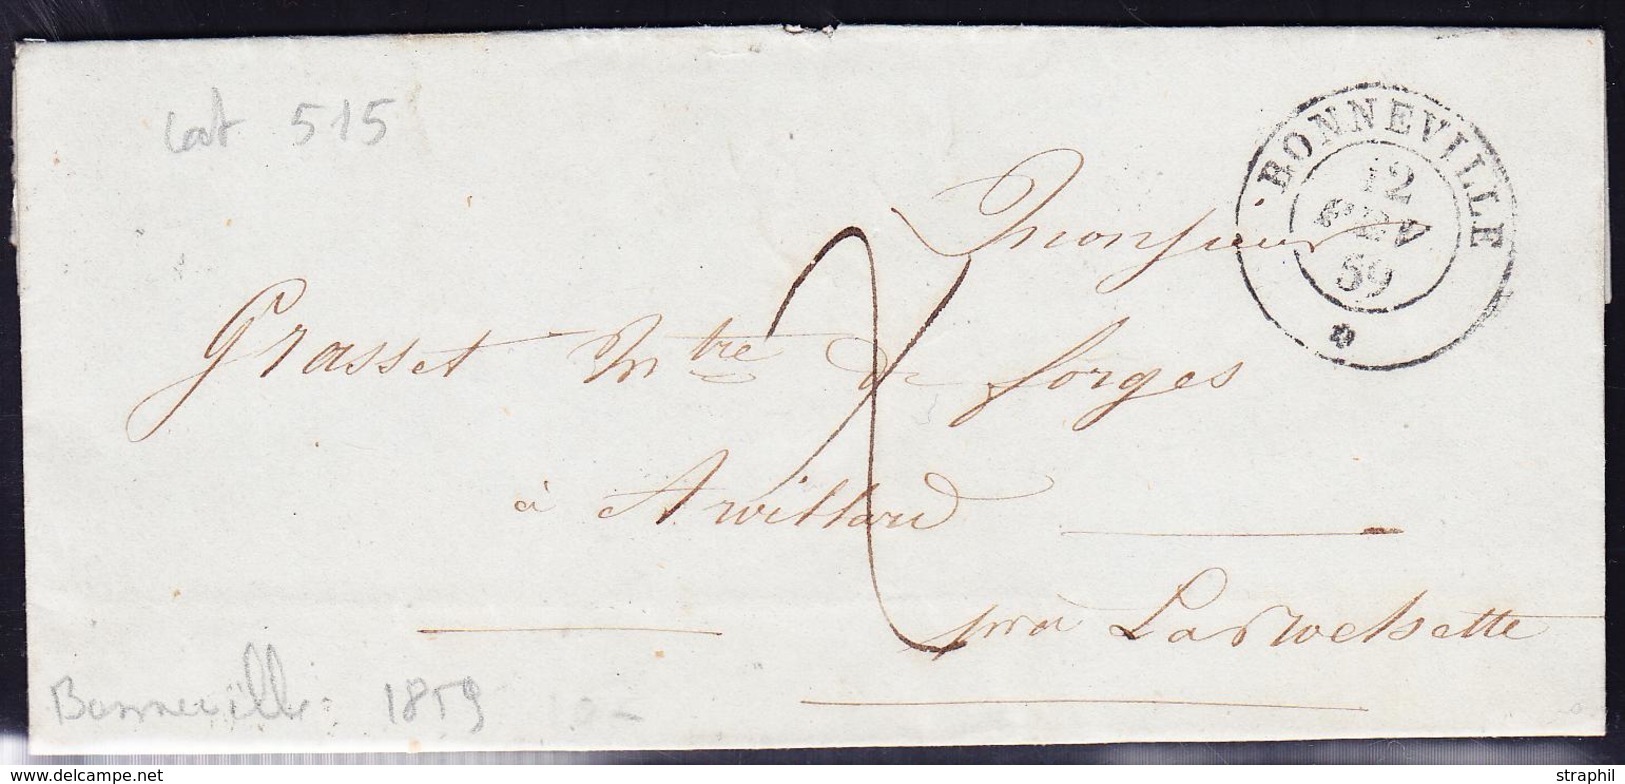 Cot 515
BONNEVILLE
12
59
Monsieur
Grasset Mtre de forges
à Arvillard
par La Rochette
Bonneville 1859
www.delcampe.net
straphil